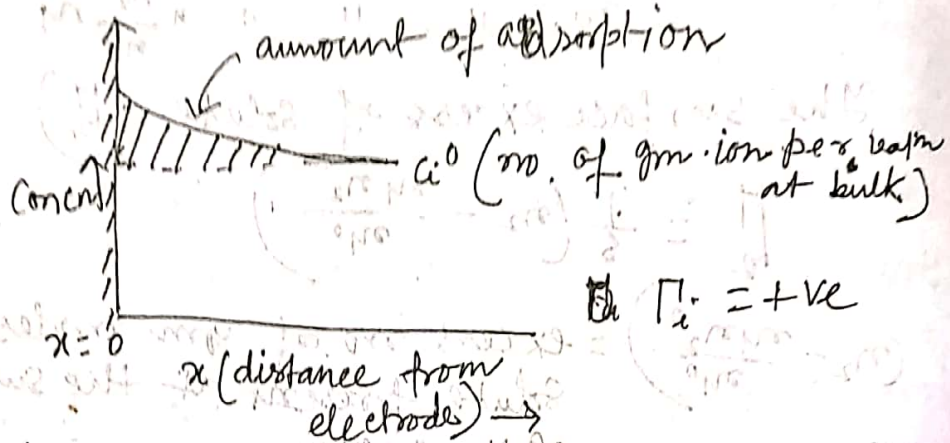 amount of adsorption
Ci⁰ (no. of gm.ion per
at bulk)
Concn
Γi = +ve
x = 0
x (distance from
electrode) →